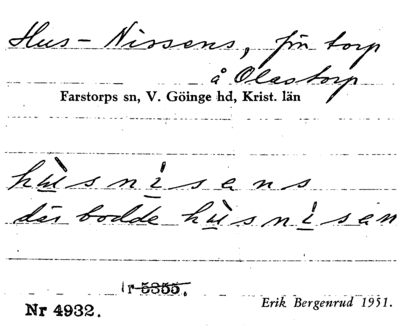 Hus-Nissens, fin torp
å Olastorp
Farstorps sn, V. Göinge hd, Krist. län
hùsnìsans
där bodde hùsnìsan
Nr 5355.
Nr 4932.
Erik Bergenrud 1951.